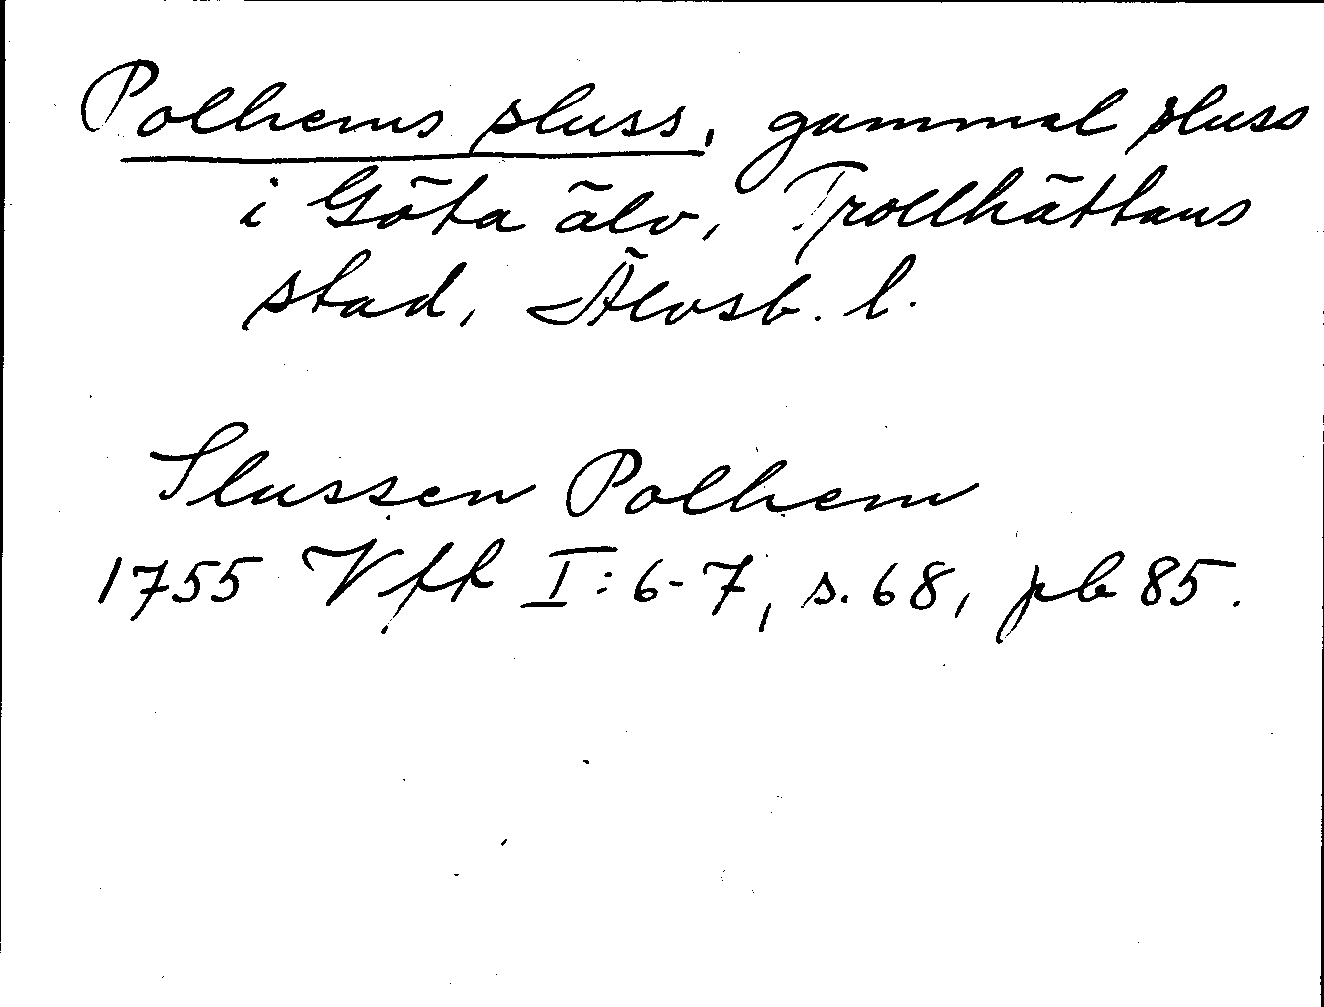 Polhems sluss, gammal sluss
i Göta älv, Trollhättans
stad, Älvsb. l.
Slussen Polhem
1755 Vfk I:6-7, s. 68, pb 85.